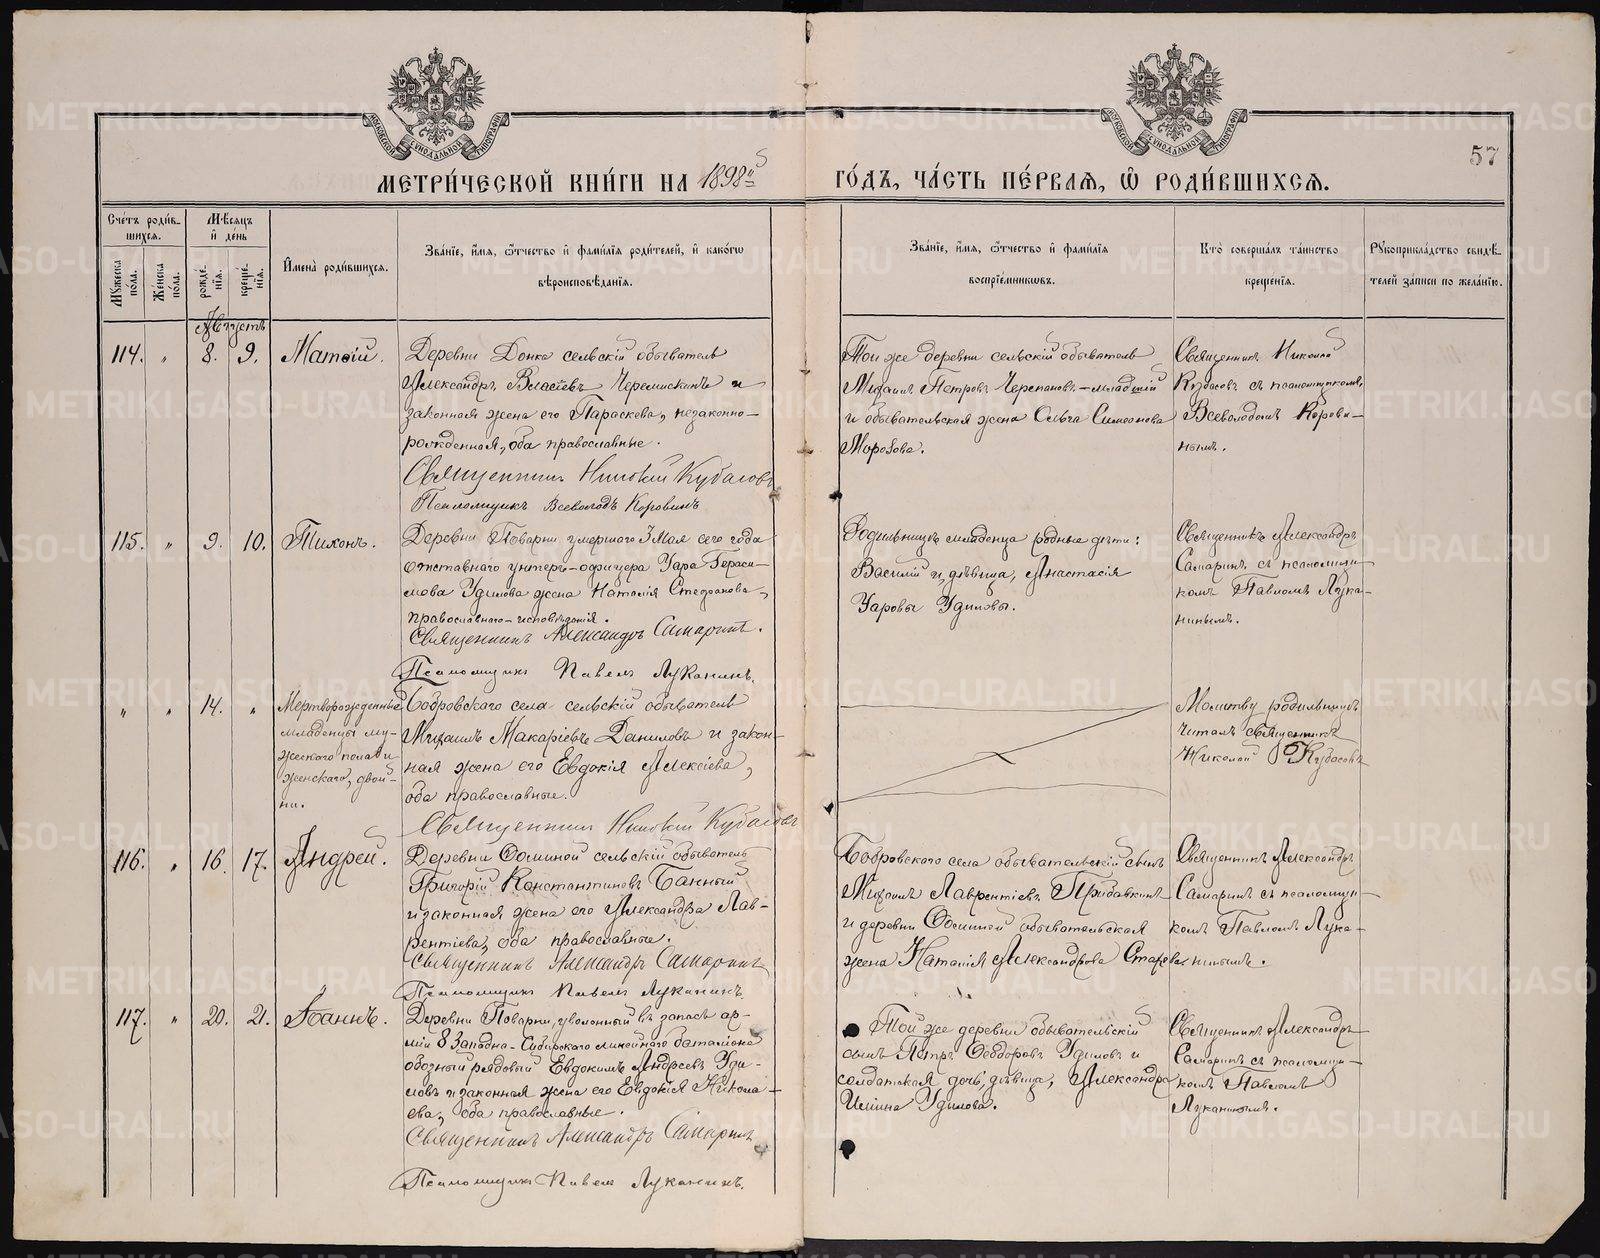 57
МЕТРИ́ЧЕСКОЙ КНИ́ГИ НА 1898й
ГО́ДЪ, ЧА́СТЬ ПЕ́РВАЯ, Ѽ РОДИ́ВШИХСЯ.
Сче́тъ роди́в-
шихся.
Мꙋ́жеска по́ла.
Же́нска по́ла.
Мѣ́сяцъ и҆ де́нь
рожде́нїя.
креще́нїя.
И҆мена̀ роди́вшихся.
Зва́нїе, и҆́мя, ѻ҆́тчество и҆ фами́лїѧ роди́телей, и҆ како́гѡ
вѣроисповѣ́данїя.
Зва́нїе, и҆́мя, ѻ҆́тчество и҆ фами́лїѧ
воспрїе́мникѡвъ.
Кто̀ соверша́лъ та́инство
креще́нїя.
Рꙋкоприкла́дство свидѣ́-
телей за́писи по жела́нїю.
Августъ
114. " 8. 9. Матѳій.
Деревни Донка сельскій обыватель
Александръ Власіевъ Черемискинъ и
законная жена его Параскева, незаконно-
рожденная, оба православные.
Священникъ Николай Кубасовъ
Псаломщикъ Всеволодъ Коровинъ
Той же деревни сельскій обыватель
Михаилъ Петровъ Черепановъ-младшій
и обывательская жена Ольга Симеонова
Морозова.
Священникъ Николай
Кубасовъ съ псаломщикомъ
Всеволодомъ Корови-
нымъ.
115. " 9. 10. Тихонъ.
Деревни Поварни умершаго 3 Мая сего года
отставнаго унтеръ-офицера Уара Гераси-
мова Удилова жена Наталія Стефанова,
православнаго-исповѣданія.
Священникъ Александръ Самаринъ.
Псаломщикъ Павелъ Луканинъ.
Родильницѣ младенца родные дѣти:
Василій и, дѣвица, Анастасія
Уаровы Удиловы.
Священникъ Александръ
Самаринъ съ псаломщи-
комъ Павломъ Лука-
нинымъ.
" " 14. " Мертворожденные
младенцы му-
жескаго пола и
женскаго, двой-
ни.
Бобровскаго села сельскій обыватель
Михаилъ Макаріевъ Даниловъ и закон-
ная жена его Евдокія Алексіева,
оба православные.
Священникъ Николай Кубасовъ
Молитву родильницѣ
читалъ священникъ
Николай Кубасовъ
116. " 16. 17. Андрей.
Деревни Осиной сельскій обыватель
Григорій Константиновъ Банный
и законная жена его Александра Лав-
рентіева, оба православные.
Священникъ Александръ Самаринъ
Псаломщикъ Павелъ Луканинъ.
Бобровскаго села обывательскій сынъ
Михаилъ Лаврентіевъ Прибавкинъ
и деревни Осиной обывательская
жена Наталія Александрова
Священникъ Александръ
Самаринъ съ псаломщи-
комъ Павломъ Лука-
нинымъ.
117. " 20. 21. Іоаннъ.
Деревни Поварни, уволенный въ запасъ ар-
міи 8 Западно-Сибирскаго линейнаго баталіона
обозный рядовой Евдокимъ Андреевъ Уди-
ловъ и законная жена его Евдокія Никола-
ева, оба православные.
Священникъ Александръ Самаринъ
Псаломщикъ Павелъ Луканинъ.
Той же деревни обывательскій
сынъ Петръ Ѳеодоровъ Удиловъ и
солдатская дочь, дѣвица, Александра
Ильина Удилова.
Священникъ Александръ
Самаринъ съ псаломщи-
комъ Павломъ
Луканинымъ.
METRIKI.GASO-URAL.RU